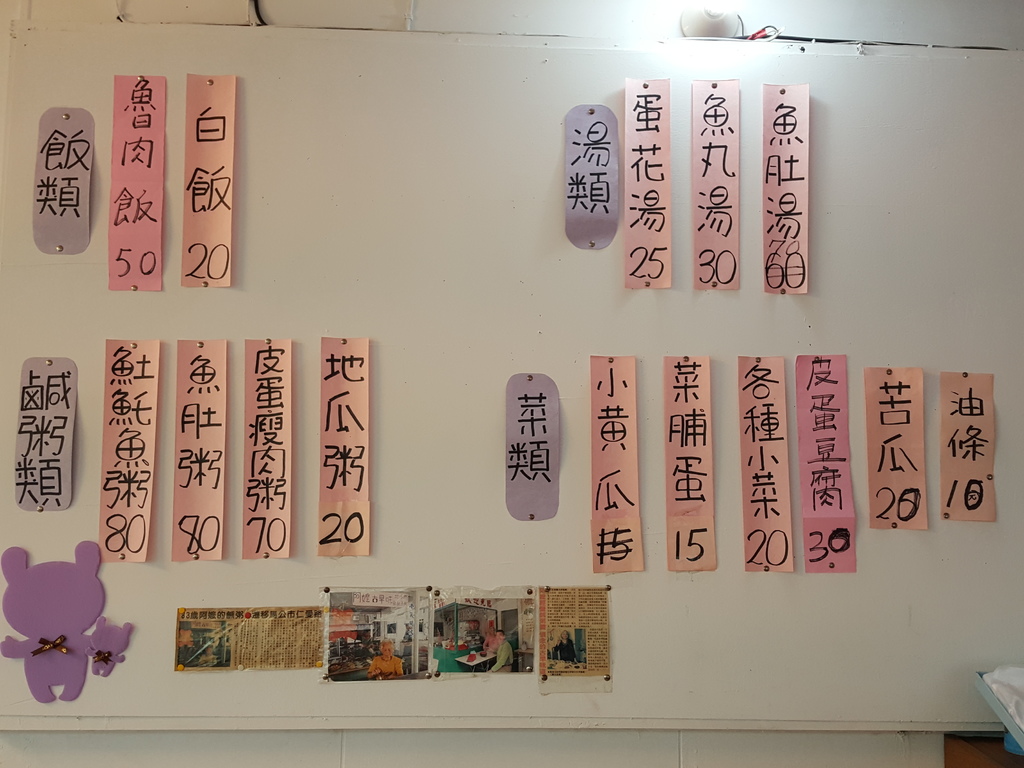 飯類
魯肉飯 50
白飯 20
湯類
蛋花湯 25
魚丸湯 30
魚肚湯 70 60
鹹粥類
魠魠魚粥 80
魚肚粥 80
皮蛋瘦肉粥 70
地瓜粥 20
菜類
小黃瓜 時
菜脯蛋 15
各種小菜 20
皮蛋豆腐 30
苦瓜 20
油條 10